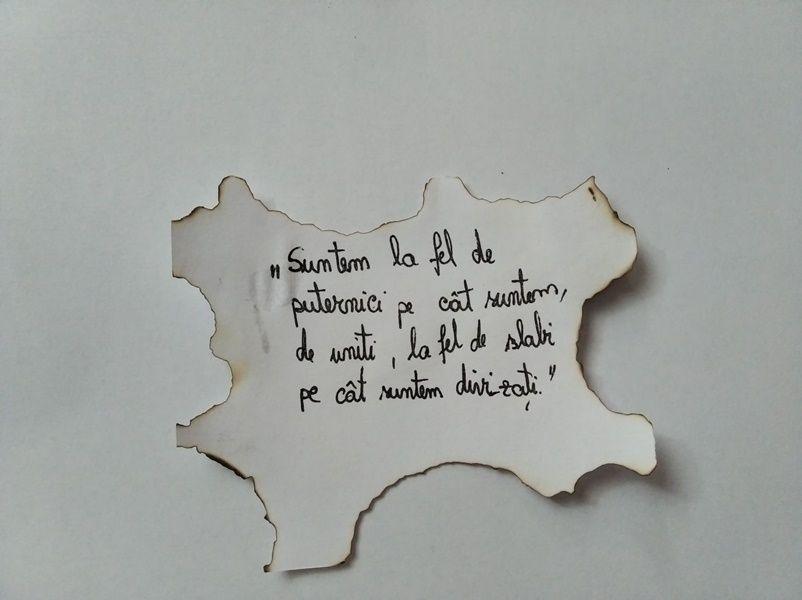 „Suntem la fel de
puternici pe cât suntem,
de uniti, la fel de slabi
pe cât suntem divi-zați."